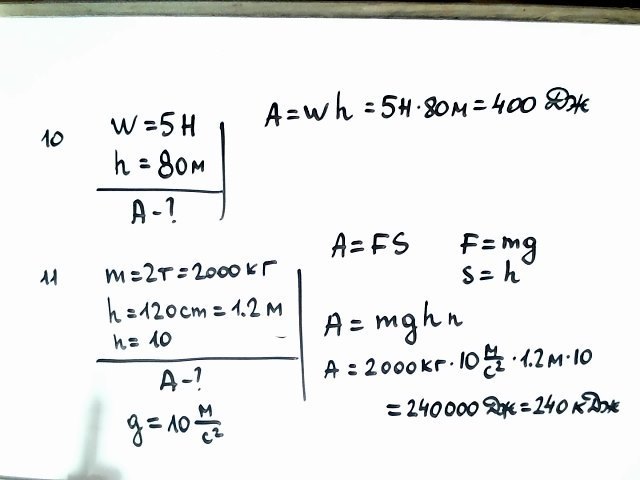 10
W = 5Н
h = 80м
A - ?
A = Wh = 5Н · 80м = 400 Дж
11
m = 2т = 2000кг
h = 120cm = 1.2м
n = 10
A - ?
g = 10 м/с²
A = FS F = mg
S = h
A = mghn
A = 2000кг · 10 м/с² · 1.2м · 10
= 240000 Дж = 240 кДж